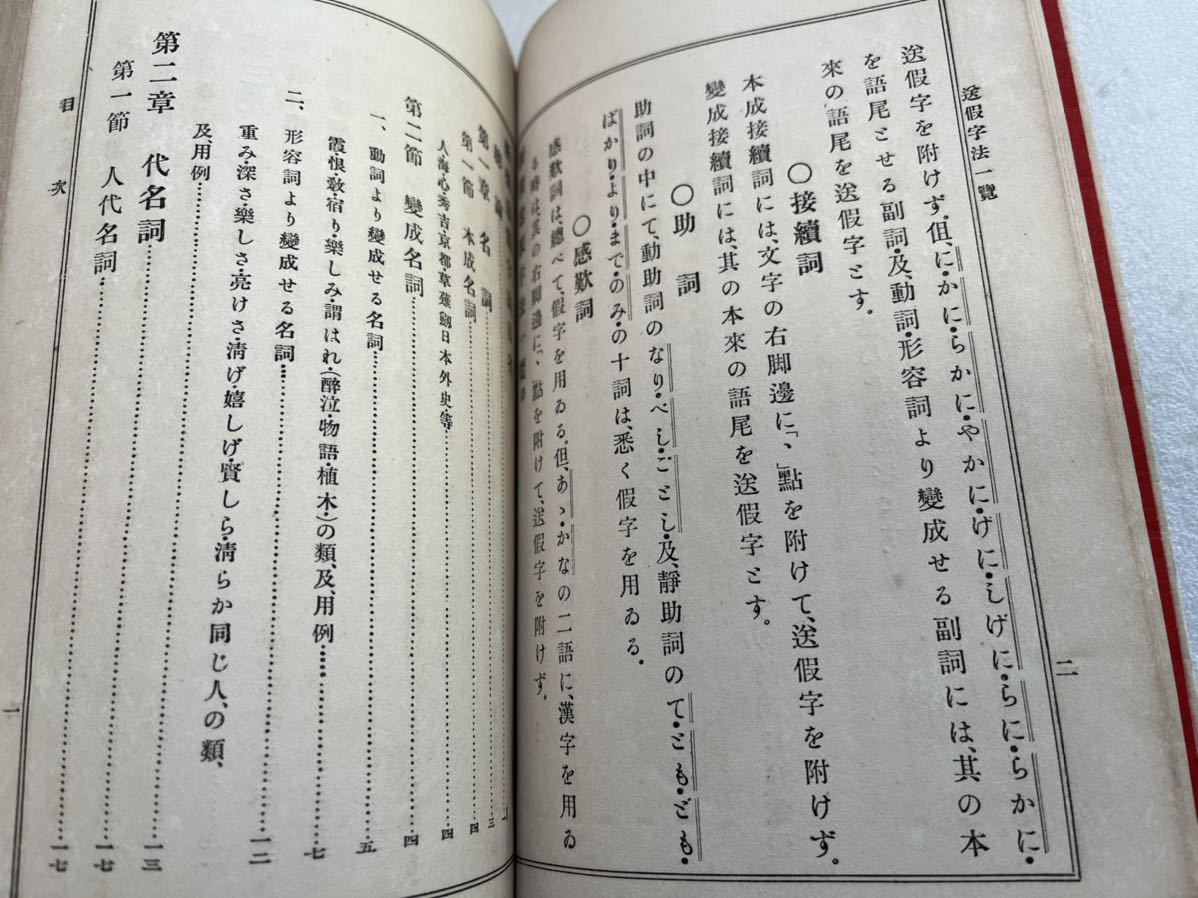 送假字法一覽
二
送假字を附けず。但、に・かに・らかに・やかに・げに・しげに・らに・らかに・
を語尾とせる副詞・及、動詞・形容詞より變成せる副詞には、其の本
來の語尾を送假字とす。
○接續詞
本成接續詞には、文字の右脚邊に「、」點を附けて、送假字を附けず。
變成接續詞には、其の本來の語尾を送假字とす。
○助詞
助詞の中にて、動助詞のなり・べし・ごとし・及、靜助詞のて・とも・ども・
ばかり・より・まで・のみ・の十詞は、悉く假字を用ゐる。
○感歎詞
感歎詞は、總べて、假字を用ゐる。但、あゝ・かなの二語に、漢字を用ゐ
る時は、其の右脚邊に「、」點を附けて、送假字を附けず。
第一章 名詞 三
第一節 本成名詞 四
人・海・心・秀吉・京都・草薙劔・日本外史等 四
第二節 變成名詞 四
一、動詞より變成せる名詞 五
霞・恨・敎・宿り・樂しみ・謂はれ・(醉泣・物語・植木・)の類、及、用例 七
二、形容詞より變成せる名詞 一二
重み・深さ・樂しさ・亮けさ・淸げ・嬉しげ・賢しら・淸らか同じ人、の類、
及用例 一三
第二章 代名詞 一七
第一節 人代名詞 一七
目次
一